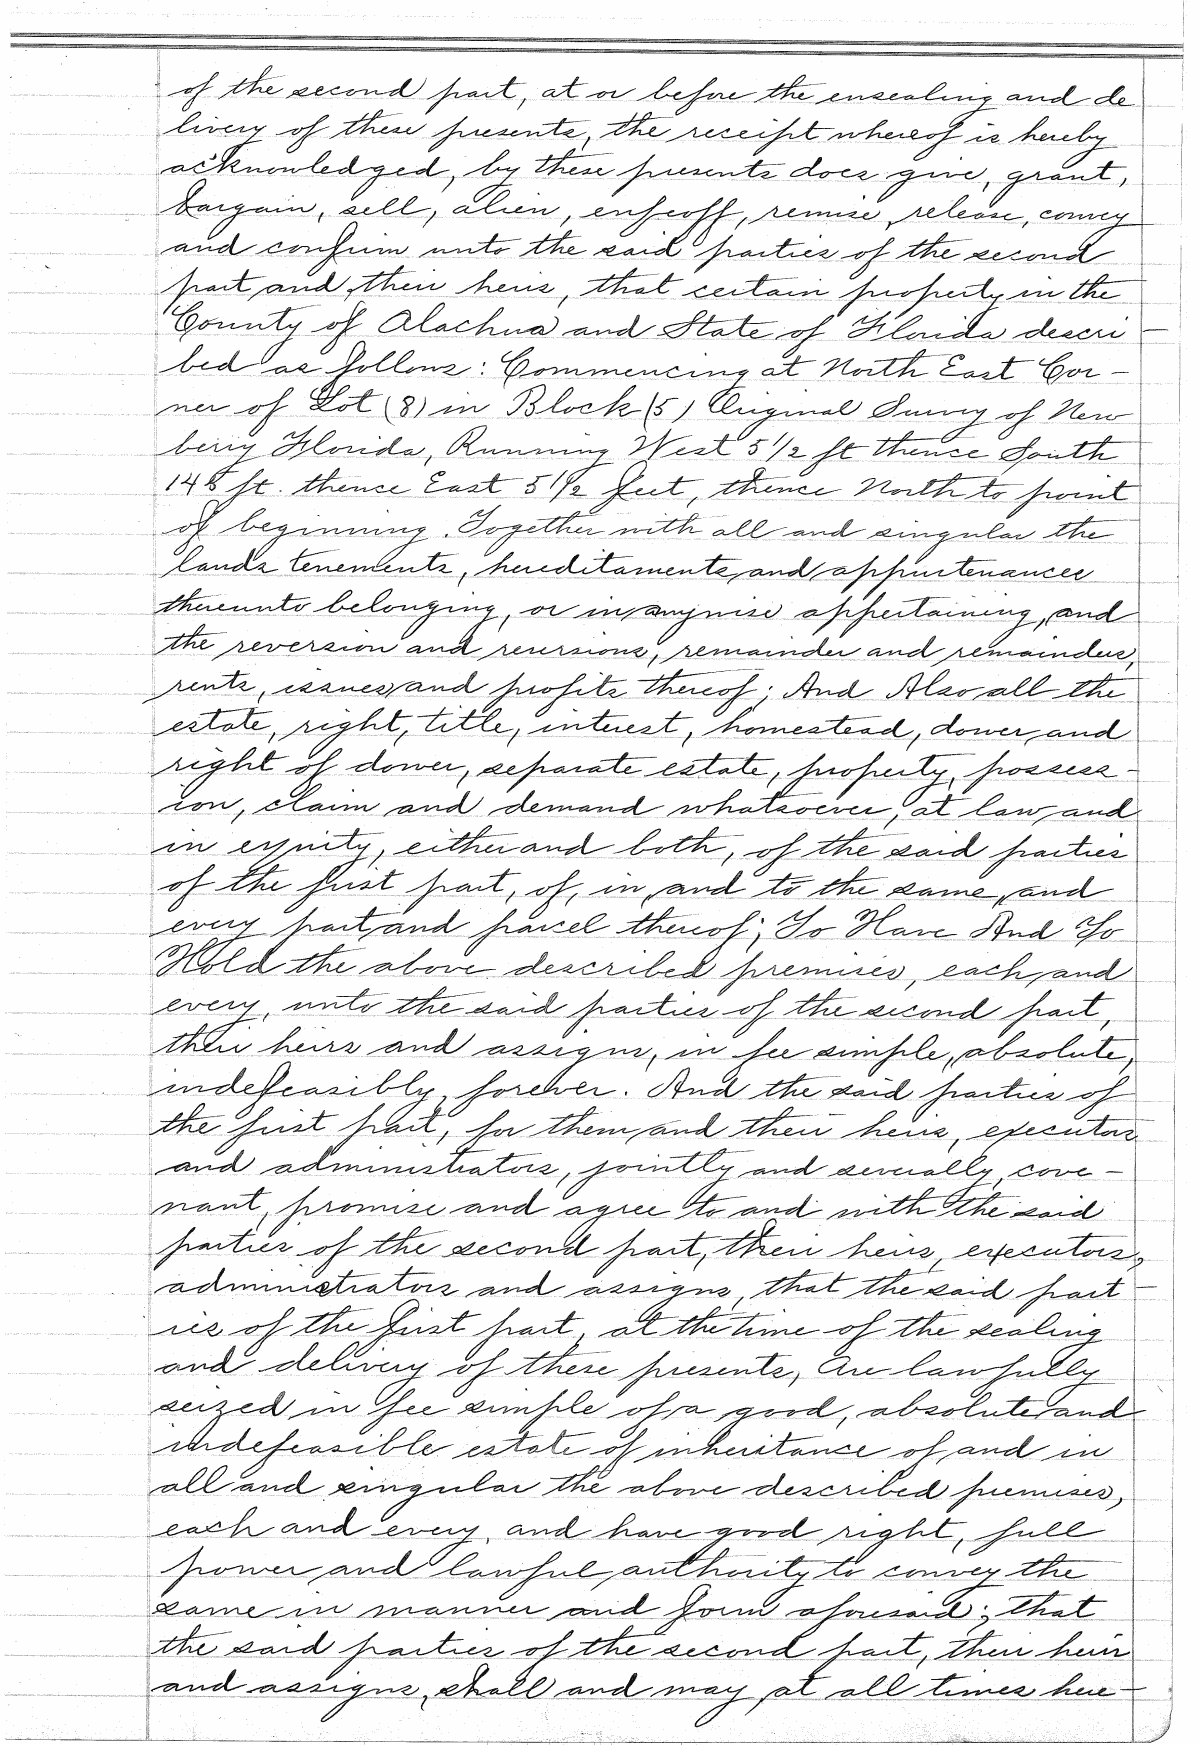 of the second part, at or before the ensealing and de
livery of these presents, the receipt whereof is hereby
acknowledged, by these presents does give, grant,
bargain, sell, alien, enfeoff, remise, release, convey
and confirm unto the said parties of the second
part and their heirs, that certain property in the
County of Alachua and State of Florida descri
bed as follows: Commencing at North East Cor-
ner of Lot (8) in Block (5) Original Survey of New
berry Florida, Running West 5 1/2 ft thence South
148 ft. thence East 5 1/2 feet, thence North to point
of beginning. Together with all and singular the
lands tenements, hereditaments and appurtenances
thereunto belonging, or in anywise appertaining, and
the reversion and reversions, remainder and remainders,
rents, issues and profits thereof; And Also all the
estate, right, title, interest, homestead, dower and
right of dower, separate estate, property, possess-
ion, claim and demand whatsoever, at law and
in equity, either and both, of the said parties
of the first part, of, in and to the same, and
every part and parcel thereof; To Have And To
Hold the above described premises, each and
every, unto the said parties of the second part,
their heirs and assigns, in fee simple, absolute,
indefeasibly, forever. And the said parties of
the first part, for them and their heirs, executors
and administrators, jointly and severally, cove-
nant, promise and agree to and with the said
parties of the second part, their heirs, executors,
administrators and assigns, that the said part
ies of the first part, at the time of the sealing
and delivery of these presents, Are lawfully
seized in fee simple of a good, absolute and
indefeasible estate of inheritance of and in
all and singular the above described premises,
each and every, and have good right, full
power and lawful authority to convey the
same in manner and form aforesaid; that
the said parties of the second part, their heirs
and assigns, shall and may at all times here-